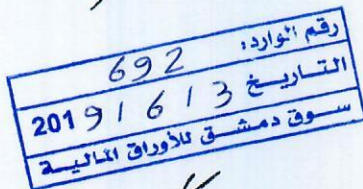 رقم الوارد: 692
التاريخ 3 / 6 / 2019
سوق دمشق للأوراق المالية